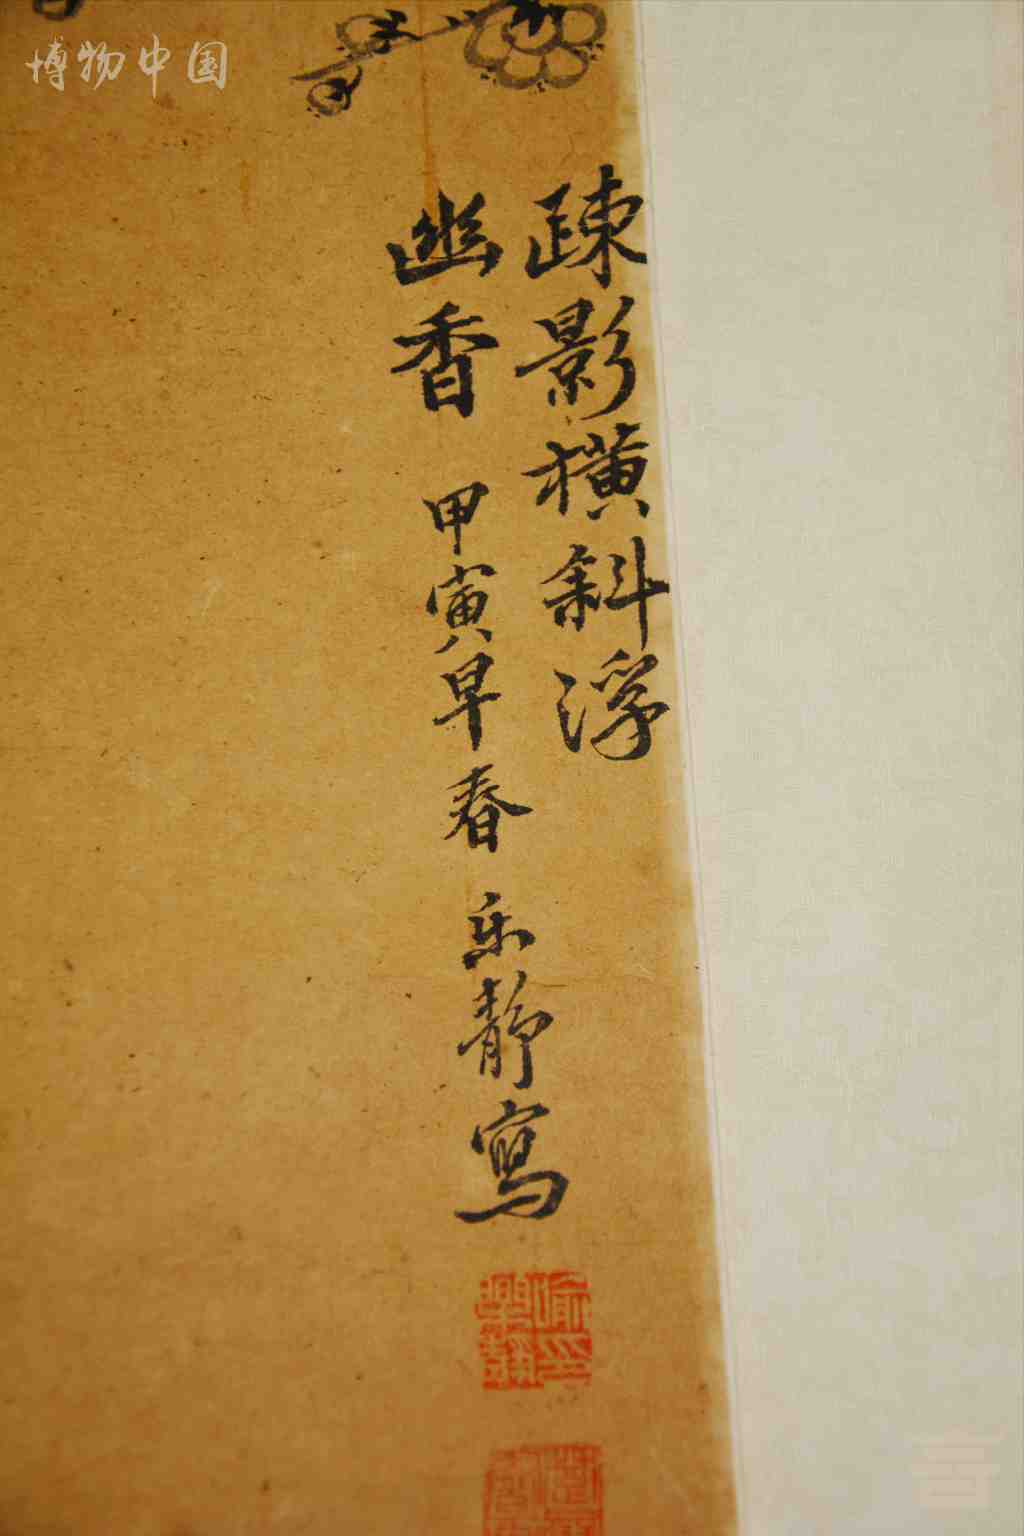 博物中国
疎影橫斜浮
幽香 甲寅早春 乐靜寫